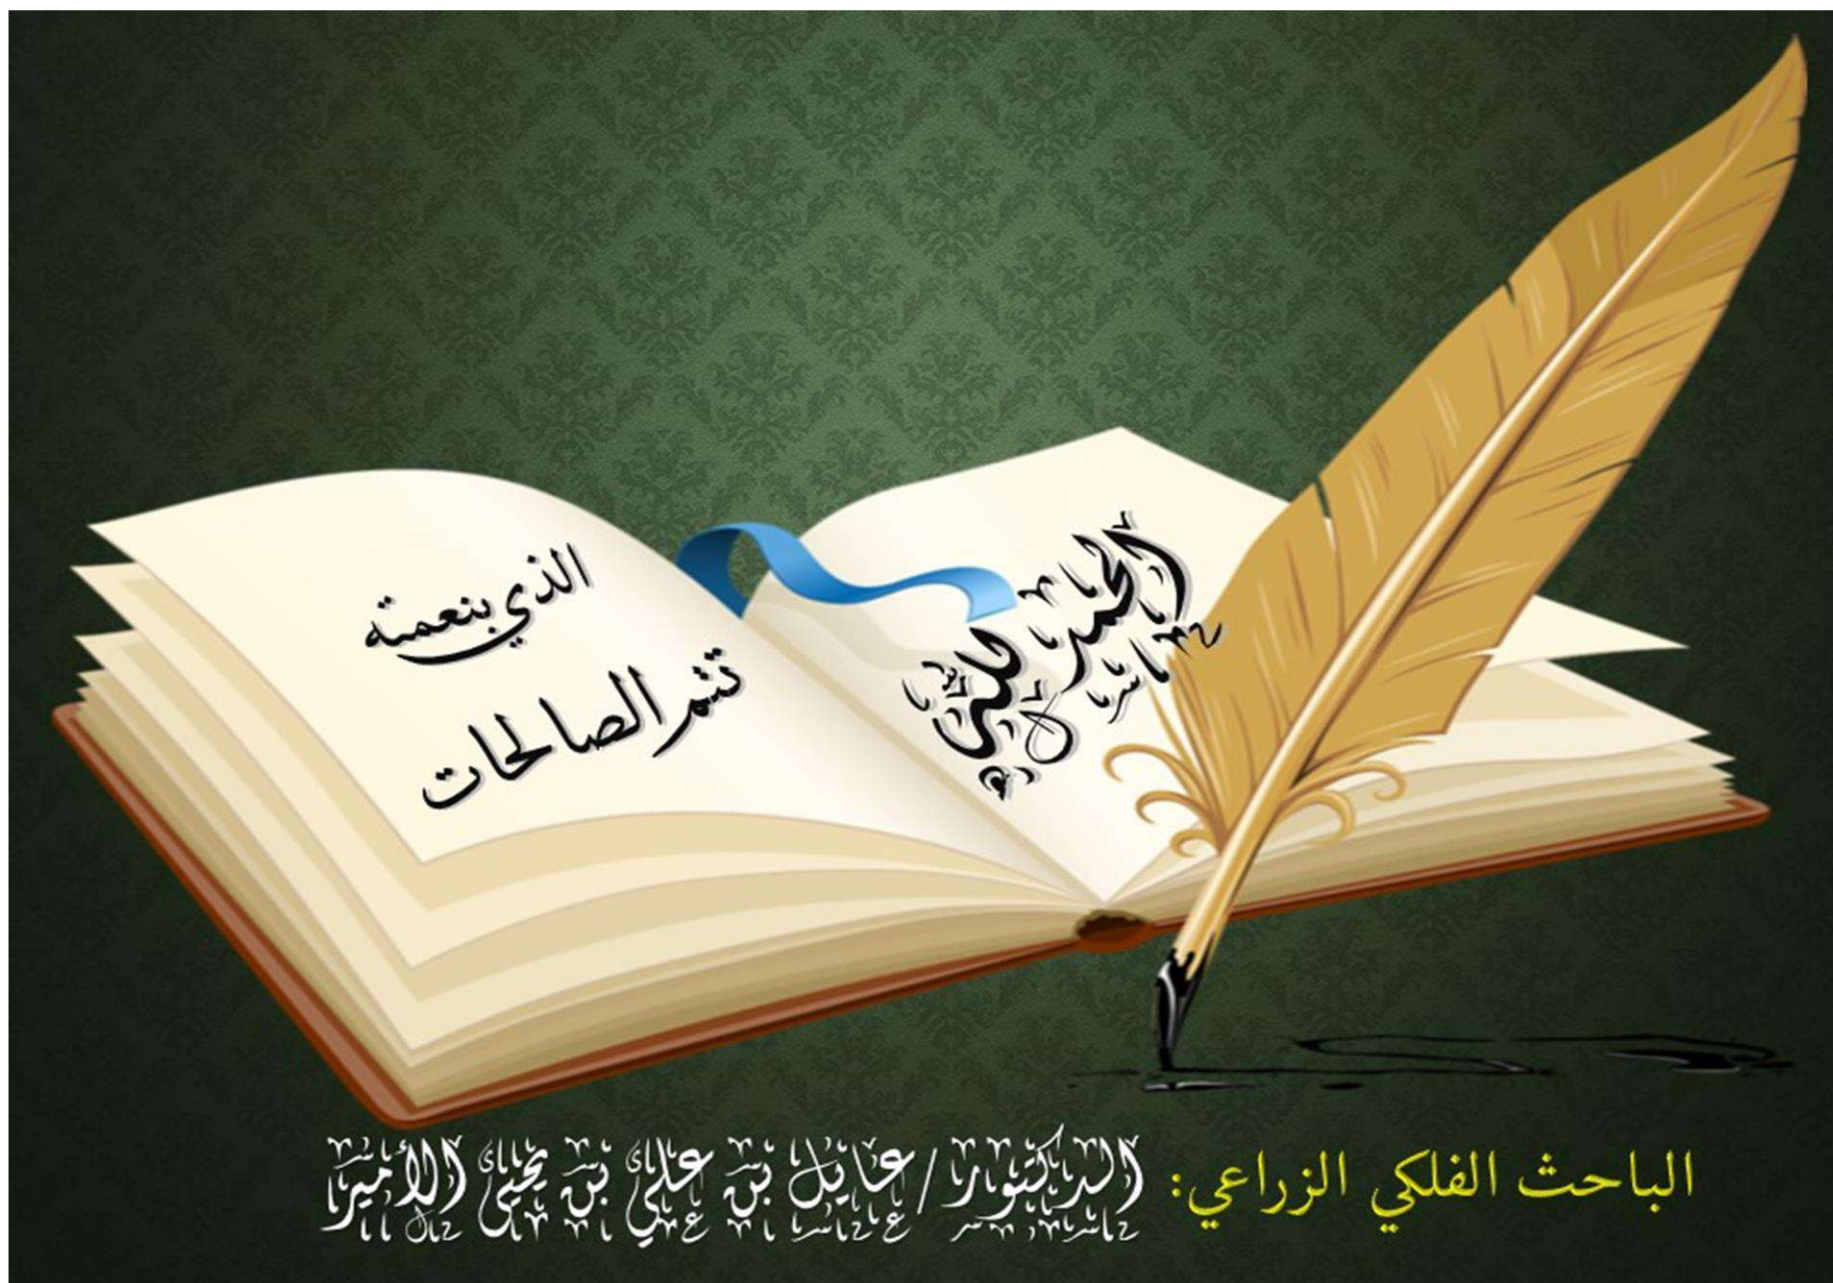 الحمد لله
الذي بنعمته
تتم الصالحات
الباحث الفلكي الزراعي: الدكتور/عايل بن علي بن يحيى الأمير